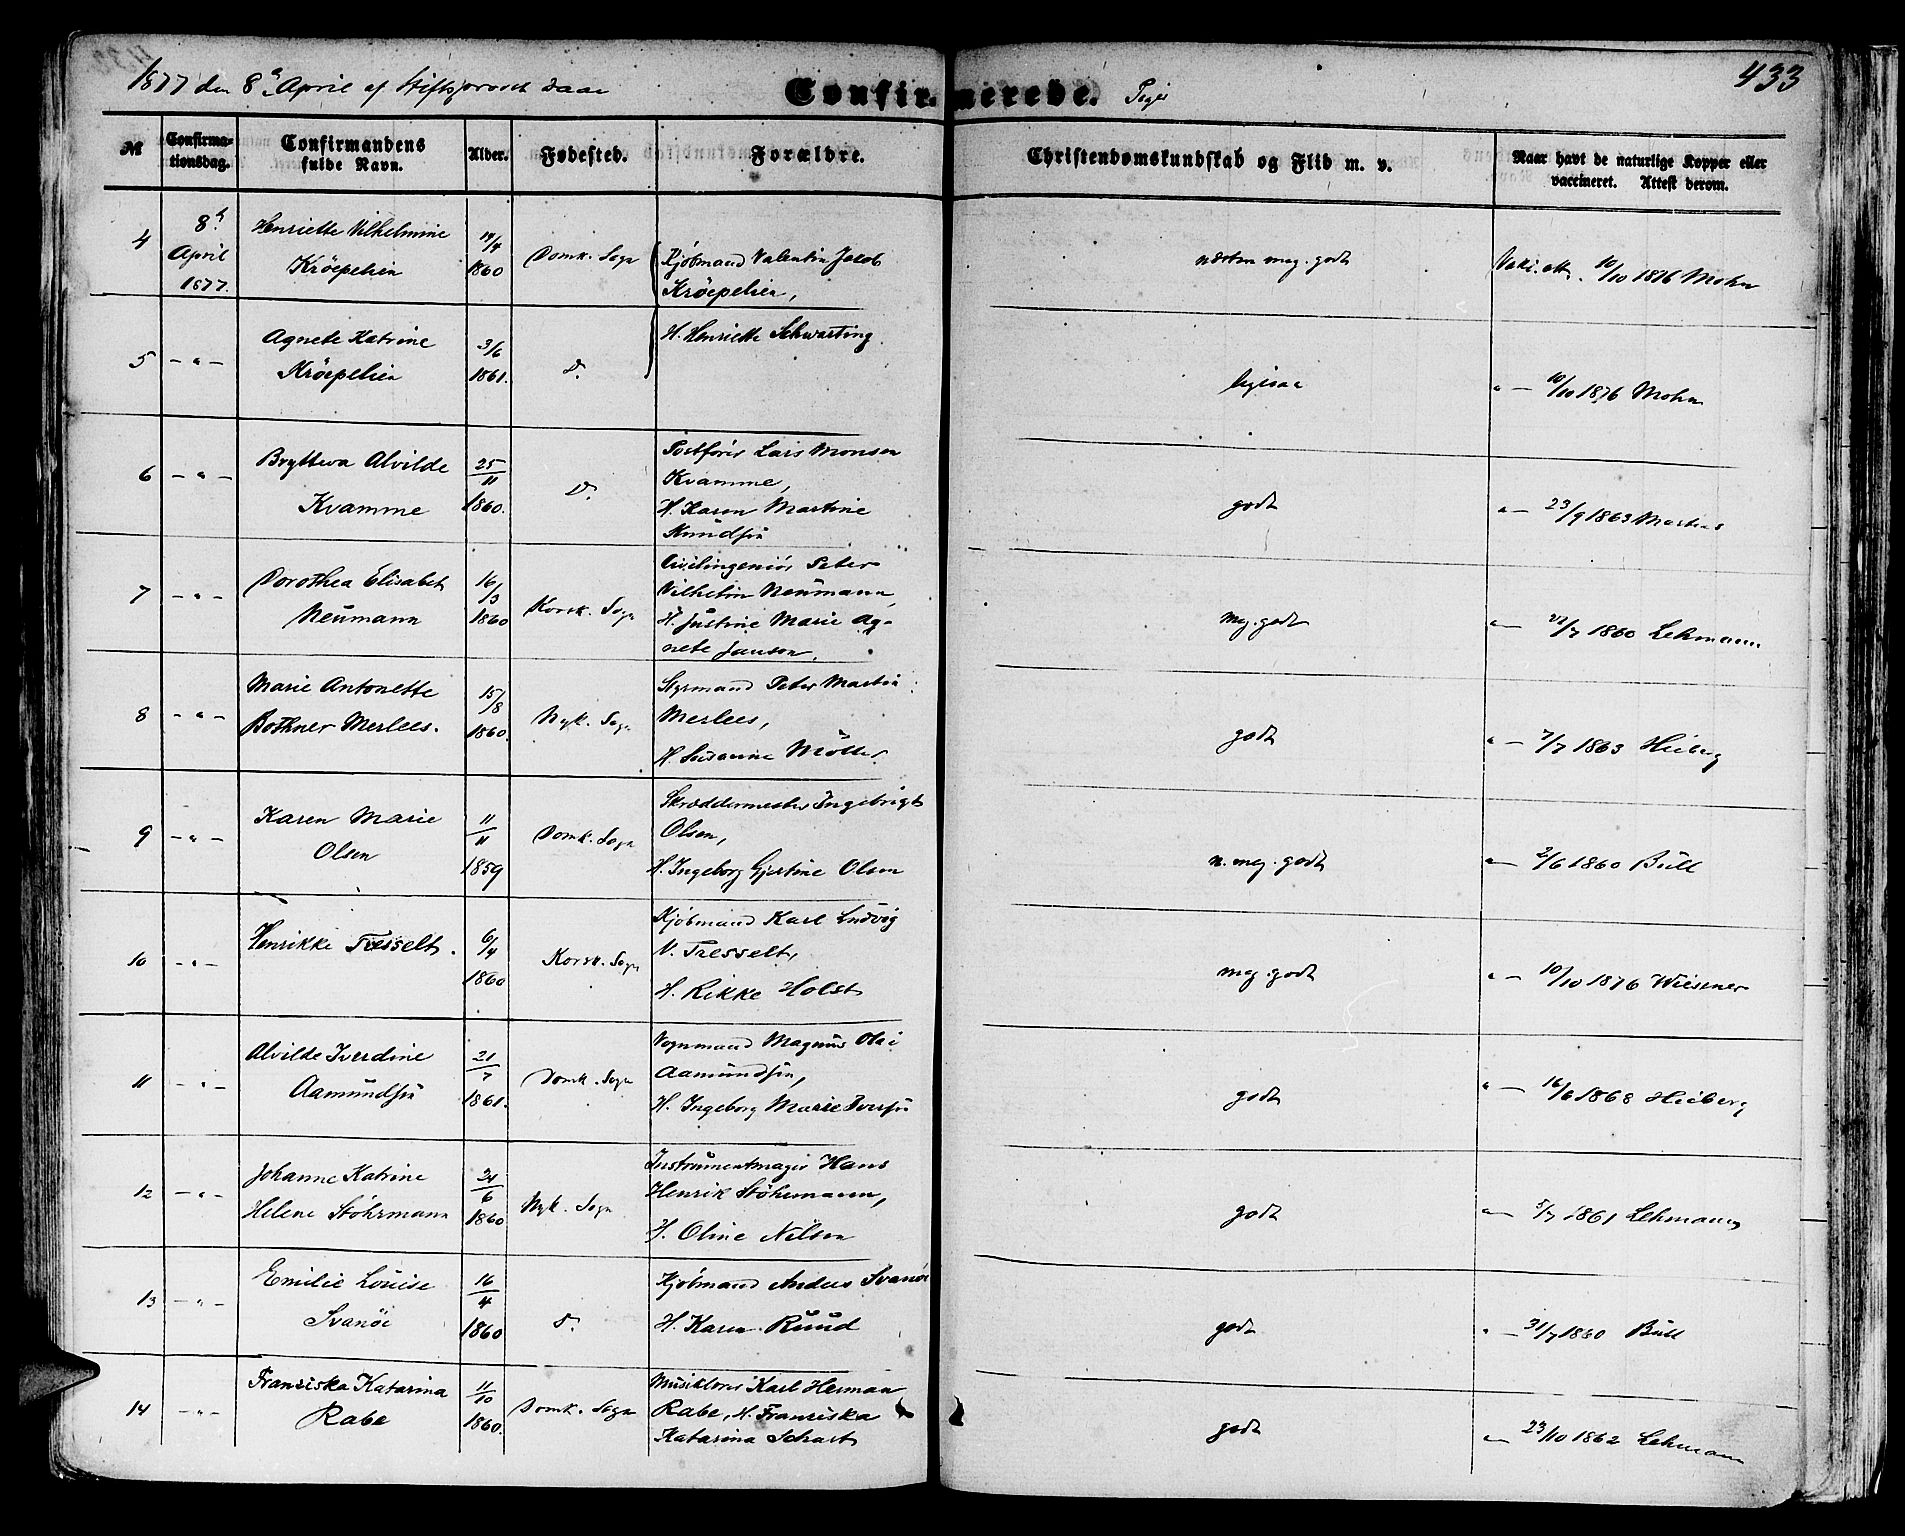 1877 den 8de April af Stiftsprovst Daae
Confirmerede. Piger
433
№
Confirmationsdag.
Confirmandens fulde Navn.
Alder.
Fødested.
Forældre.
Christendomskundskab og Flid m. v.
Naar havt de naturlige Kopper eller
vaccineret. Attest derom.
4 8de April 1877. Henriette Vilhelmine
Kröepelien
/4 1860 Domk. Sogn
Kjøbmand Valentin Jacob
Kröepelien,
næsten meg. godt
10/10 1876 Mohn
5 - " - Agnete Katrine
Kröepelien
3/6 1861. D.
H. Henriette Schwarting
ligesaa
" - 10/10 1876 Mohn
6 - " - Brytteva Alvilde
Kvamme
25/11 1860. D.
Postfører Lars Monsen
Kvamme,
H. Karen Martine
Knudsen
godt
" - 23/9 1863 Martens
7 - " - Dorothea Elisabet
Neumann
16/3 1860 Korsk. Sogn
Civilingeniør Peter
Vilhelm Neumann,
H. Justine Marie Ag-
nete Janson.
meg. godt
" - /7 1860 Lehmann
8 - " - Marie Antonette
Bothner Merlees.
15/8 1860. Nyk. Sogn
Styrmand Peter Martin
Merlees,
H. Susanne Möller
godt
" - 7/7 1863 Heiberg
9 - " - Karen Marie
Olsen
11/11 1859 Domk. Sogn
Skræddermester Ingebrigt
Olsen,
H. Ingeborg Gjertine Olsen
n. meg. godt
" - 2/6 1860 Büll
10 - " - Henrikke Tresselt.
6/4 1860 Korsk. Sogn
Kjøbmand Karl Ludvig
N. Tresselt,
H. Rikke Holst
meg. godt
" - 10/10 1876 Wiesener
11 - " - Alvilde Iverdine
Aamundsen
21/7 1861. Domk. Sogn
Vognmand Magnus Olai
Aamundsen,
H. Ingeborg Marie Iversen
godt
" - 16/6 1868 Heiberg
12 - " - Johanne Katrine
Helene Stöhrmann
/6 1860 Nyk. Sogn
Instrumentmager Hans
Henrik Stöhrmann,
H. Oline Nilsen
godt
" - 5/7 1861 Lehmann
13 - " - Emilie Louise
Svanöe
16/4 1860 D.
Kjøbmand Anders Svanöe
H. Karen Ruud
godt
" - 31/7 1860 Büll
14 - " - Franciska Katarina
Rabe
11/10 1860. Domk. Sogn
Musiklærer Karl Herman
Rabe, H. Franciska
Katarina Schart
godt
" - 23/10 1862 Lehmann